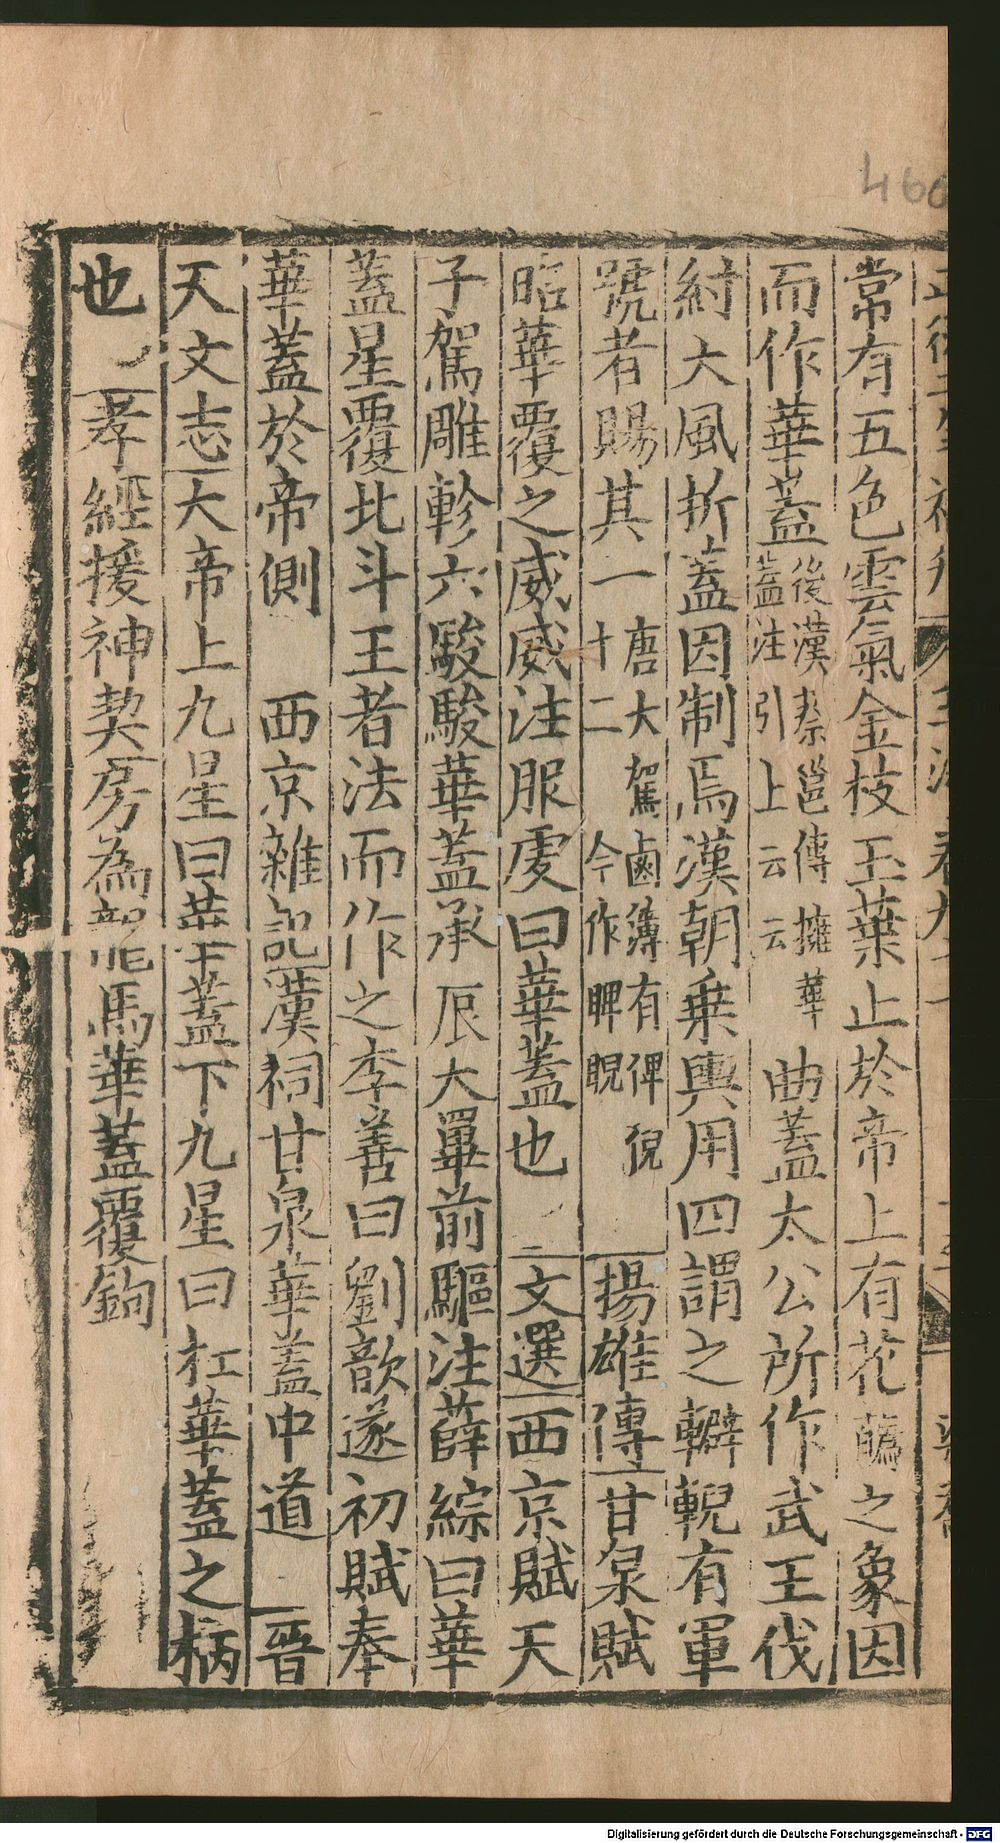 460
常有五色雲氣金枝玉葉止於帝上有花蘤之象因
而作華蓋後漢蔡邕傳擁華蓋注引上云云曲蓋太公所作武王伐
紂大風折蓋因制焉漢朝乗輿用四謂之轓輗有軍
號者賜其一唐大駕鹵簿有俾倪十二今作睥睨揚雄傳甘泉賦
昭華覆之威威注服虔曰華蓋也文選西京賦天
子駕雕軫六駿駮華蓋承辰大畢前驅注薛綜曰華
蓋星覆北斗王者法而作之李善曰劉歆遂初賦奉
華蓋於帝側 西京雜記漢祠甘泉華蓋中道 晉
天文志大帝上九星曰華蓋下九星曰杠華蓋之柄
也 孝經援神契房為龍馬華蓋覆鉤
Digitalisierung gefördert durch die Deutsche Forschungsgemeinschaft - DFG